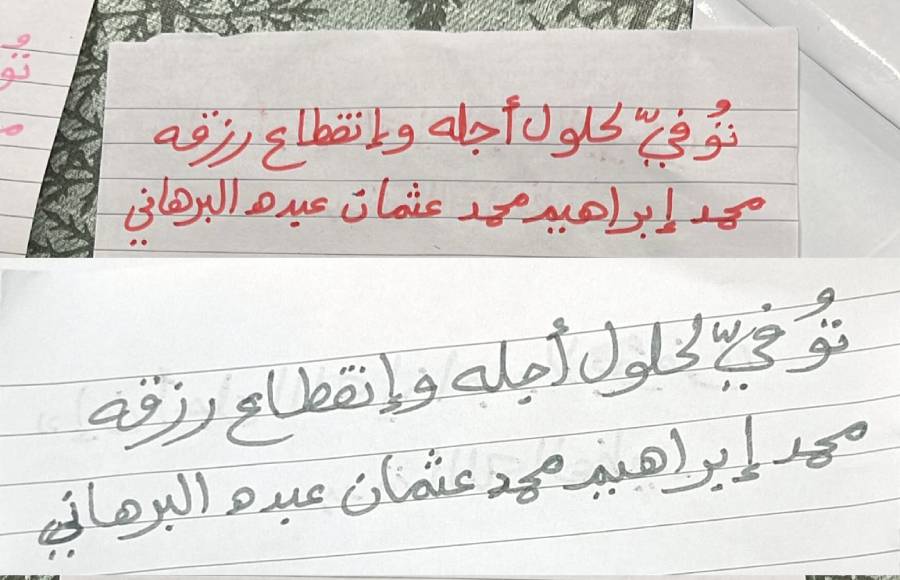 تُوُفيّ لحلول أجله وإنقطاع رزقه
محمد إبراهيم محمد عثمان عبده البرهاني
تُوُفيّ لحلول أجله وإنقطاع رزقه
محمد إبراهيم محمد عثمان عبده البرهاني